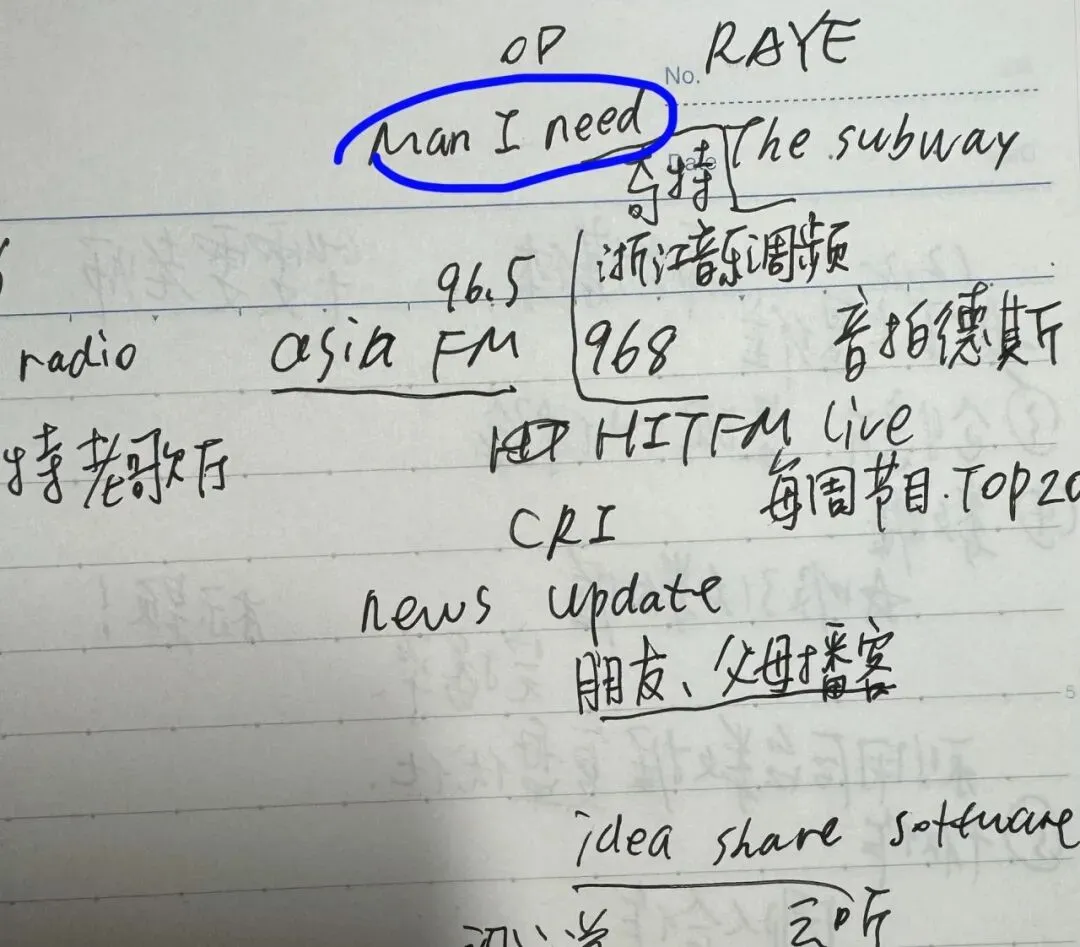 OP RAYE
No.
Man I need The subway
Date
奇特
96.5 浙江音乐调频
radio asia FM 968 音拍德其斤
特老歌厅 HITFM live
每周节目.TOP20
CRI
news update
朋友、父母播客
idea share software
云听